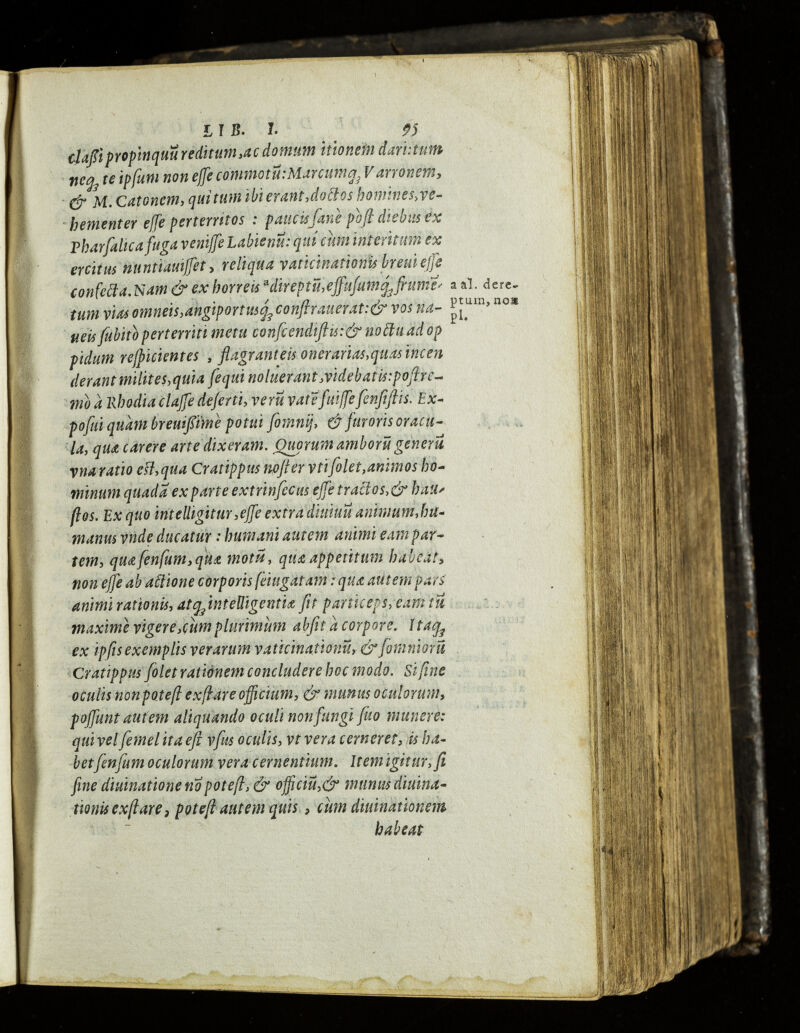 LIB. I. 95
claßi propinquũ reditum, ac domum itionem dari: tum
neq; te ipſum non eſſe commotũ: Marcumq; Varronem,
& M. Catonem, qui tum ibi erant, doctos homines, ve-
hementer eſſe perterritos : paucis ſanè pòſt diebus ex
Pharſalica fuga veniſſe Labienũ: qui cùm interitum ex
ercitus nuntiauiſſet, reliqua vaticinationis breui eſſe
confecta. Nam & ex horreis ᵃdireptũ, effuſumq; frumẽ-
tum vias omneis, angiportusq; conſtrauerat: & vos na-
ueis ſubitò perterriti metu conſcendiſtis: & noctu ad op
pidum reſpicientes , flagranteis onerarias, quas incen
derant milites, quia ſequi noluerant, videbatis: poſtre-
mò à Rhodia claſſe deſerti, verũ vatẽ fuiſſe ſenſiſtis. Ex-
poſui quàm breuißimè potui ſomnij, & furoris oracu-
la, quæ carere arte dixeram. Quorum amborũ generũ
vna ratio eſt, qua Cratippus noſter vti ſolet, animos ho-
minum quadã ex parte extrinſecus eſſe tractos, & hau-
ſtos. Ex quo intelligitur, eſſe extra diuinũ animum, hu-
manus vnde ducatur : humani autem animi eam par-
tem, quæ ſenſum, quæ motũ, quæ appetitum habeat,
non eſſe ab actione corporis ſeiugatam : quæ autem pars
animi rationis, atq; intelligentiæ ſit particeps, eam tũ
maximè vigere, cùm plurimùm abſit à corpore. Itaq;
ex ipſis exemplis verarum vaticinationũ, & ſomniorũ
Cratippus ſolet rationem concludere hoc modo. Si ſine
oculis non poteſt exſtare officium, & munus oculorum,
poſſunt autem aliquando oculi non fungi ſuo munere:
qui vel ſemel ita eſt vſus oculis, vt vera cerneret, is ha-
bet ſenſum oculorum vera cernentium. Item igitur, ſi
ſine diuinatione nõ poteſt, & officiũ, & munus diuina-
tionis exſtare, poteſt autem quis , cùm diuinationem
habeat
a al. dere-
ptum, nos
pl.